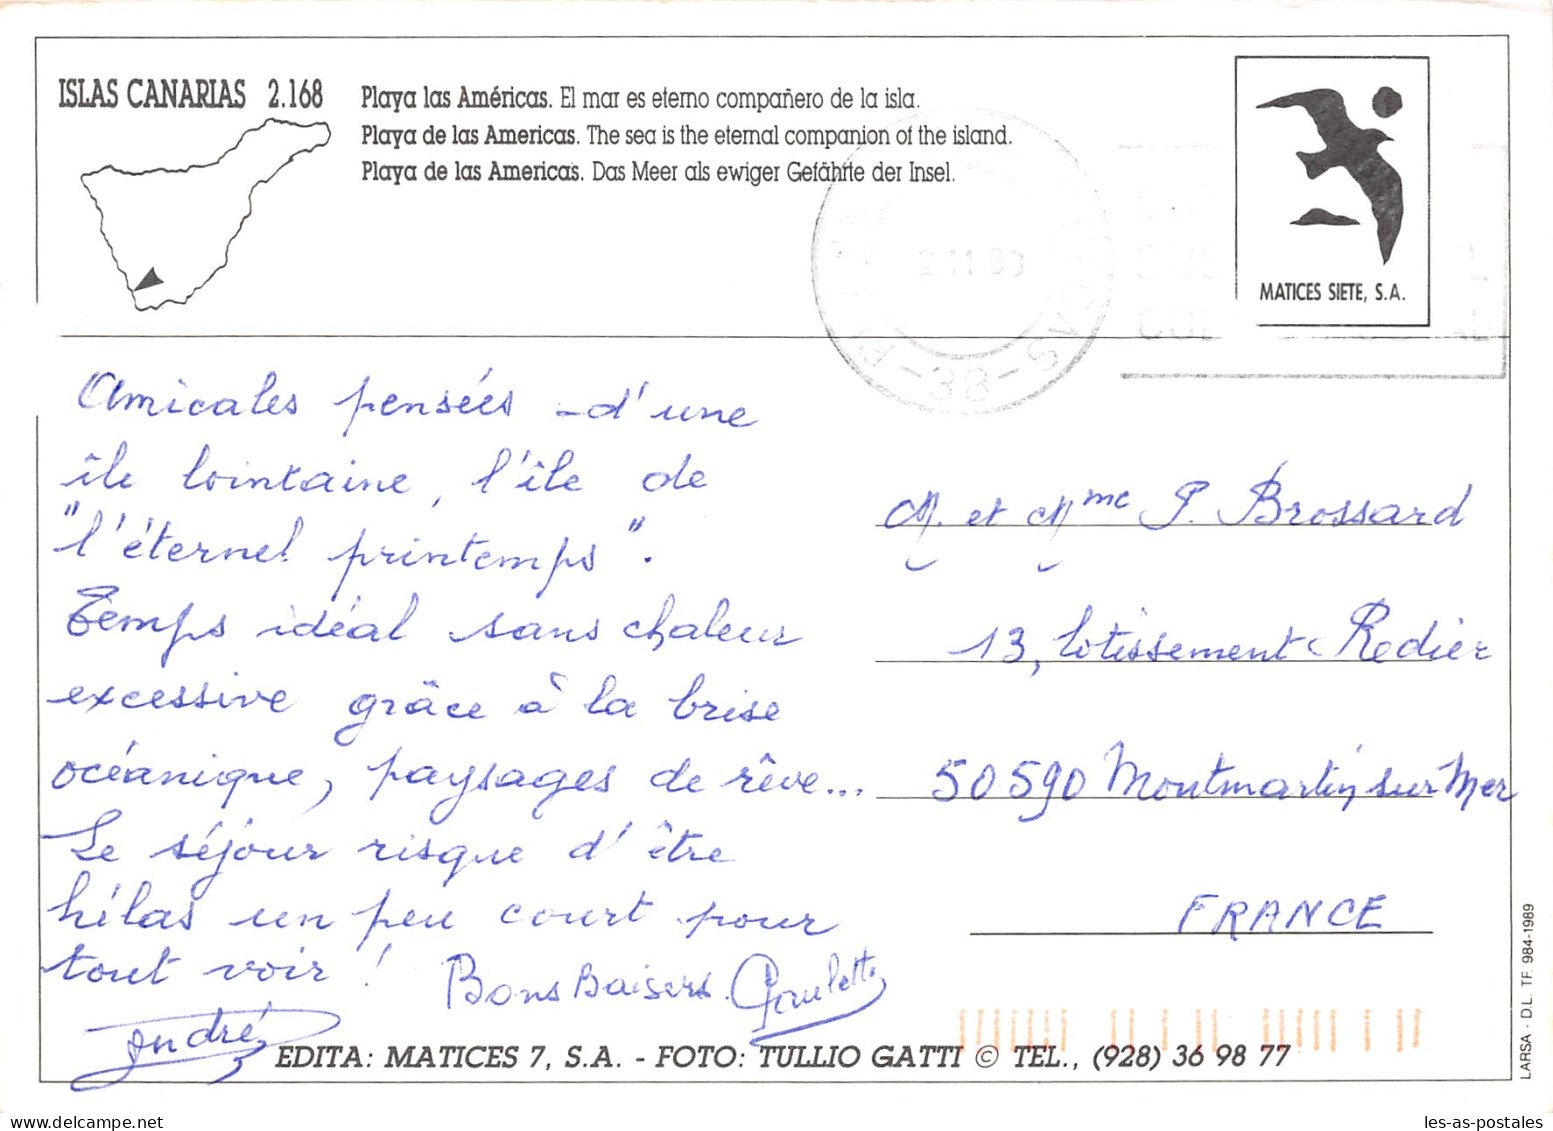 ISLAS CANARIAS 2.168
Playa las Américas. El mar es eterno compañero de la isla.
Playa de las Americas. The sea is the eternal companion of the island.
Playa de las Americas. Das Meer als ewiger Gefährte der Insel.
MATICES SIETE, S.A.
-38-
Amicales pensées d'une
île lointaine, l'île de
"l'éternel printemps".
Temps idéal sans chaleur
excessive grâce à la brise
océanique, paysages de rêve...
Le séjour risque d'être
hélas un peu court pour
tout voir !
Bons Baisers. Paulette
André
M. et Mme P. Brossard
13, lotissement Redier
50590 Montmartin sur Mer
FRANCE
EDITA: MATICES 7, S.A. - FOTO: TULLIO GATTI © TEL., (928) 36 98 77
LARSA - D.L. TF. 984-1989
les-as-postales